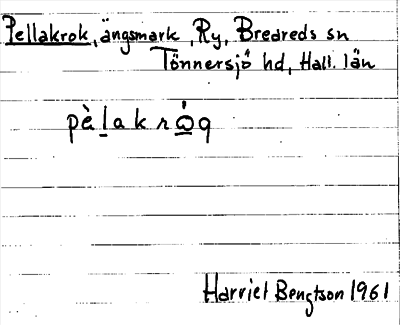 Pellakrok, ängsmark, Ry, Breareds sn
Tönnersjö hd, Hall. län
pèlakrω̇g
Harriet Bengtson 1961